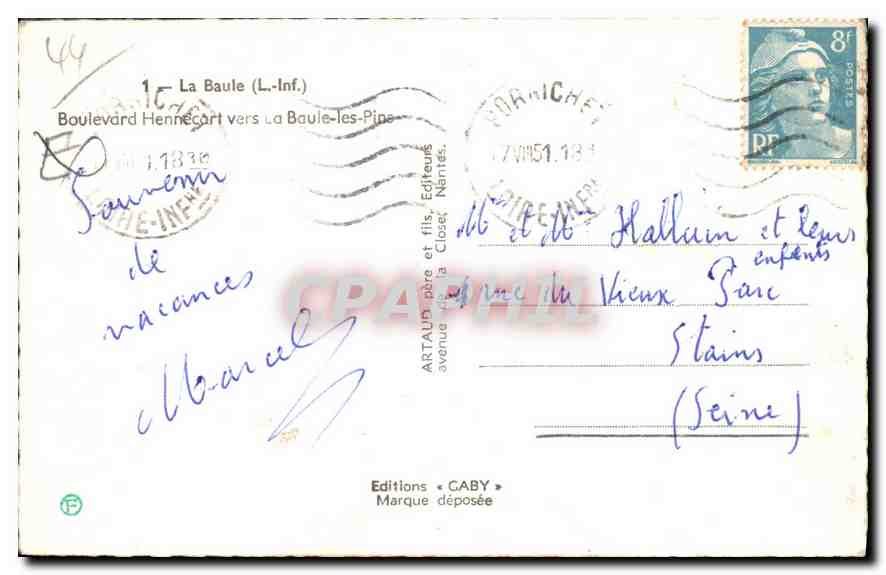 44
1 — La Baule (L.-Inf.)
Boulevard Hennecart vers La Baule-les-Pins
PORNICHET
18 30
LOIRE-INFRE
PORNICHET
7 VIII 51. 18
LOIRE-INFRE
8f
POSTES
RF
Souvenir
de
vacances
Marcel
ARTAUD père et fils, Editeurs
avenue de la Close, Nantes.
Mr et Mme Halluin et leurs
enfants
rue du Vieux Parc
Stains
(Seine)
CPAPHIL
Editions « GABY »
Marque déposée
F